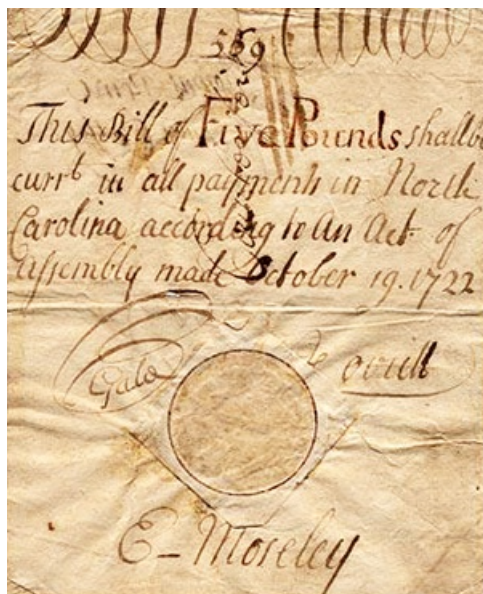 569
This Bill of Five Pounds shall be
currt in all payments in North
Carolina according to An Act of
Assembly made October 19. 1722
Gale ovick
E- Moseley